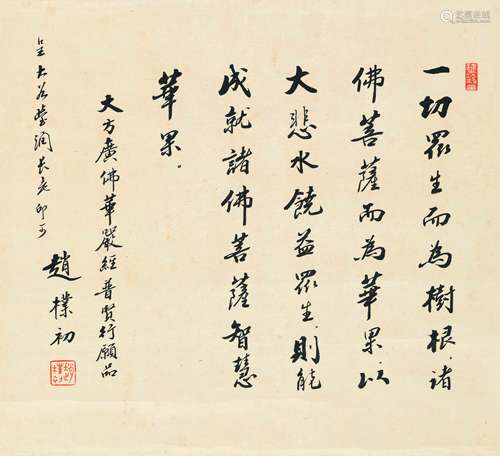 一切眾生而為樹根、諸
佛菩薩而為華果、以
大悲水饒益眾生、則能
成就諸佛菩薩智慧
華果。
大方廣佛華嚴經普賢行願品
呈大谷瑩潤長老印可
趙樸初